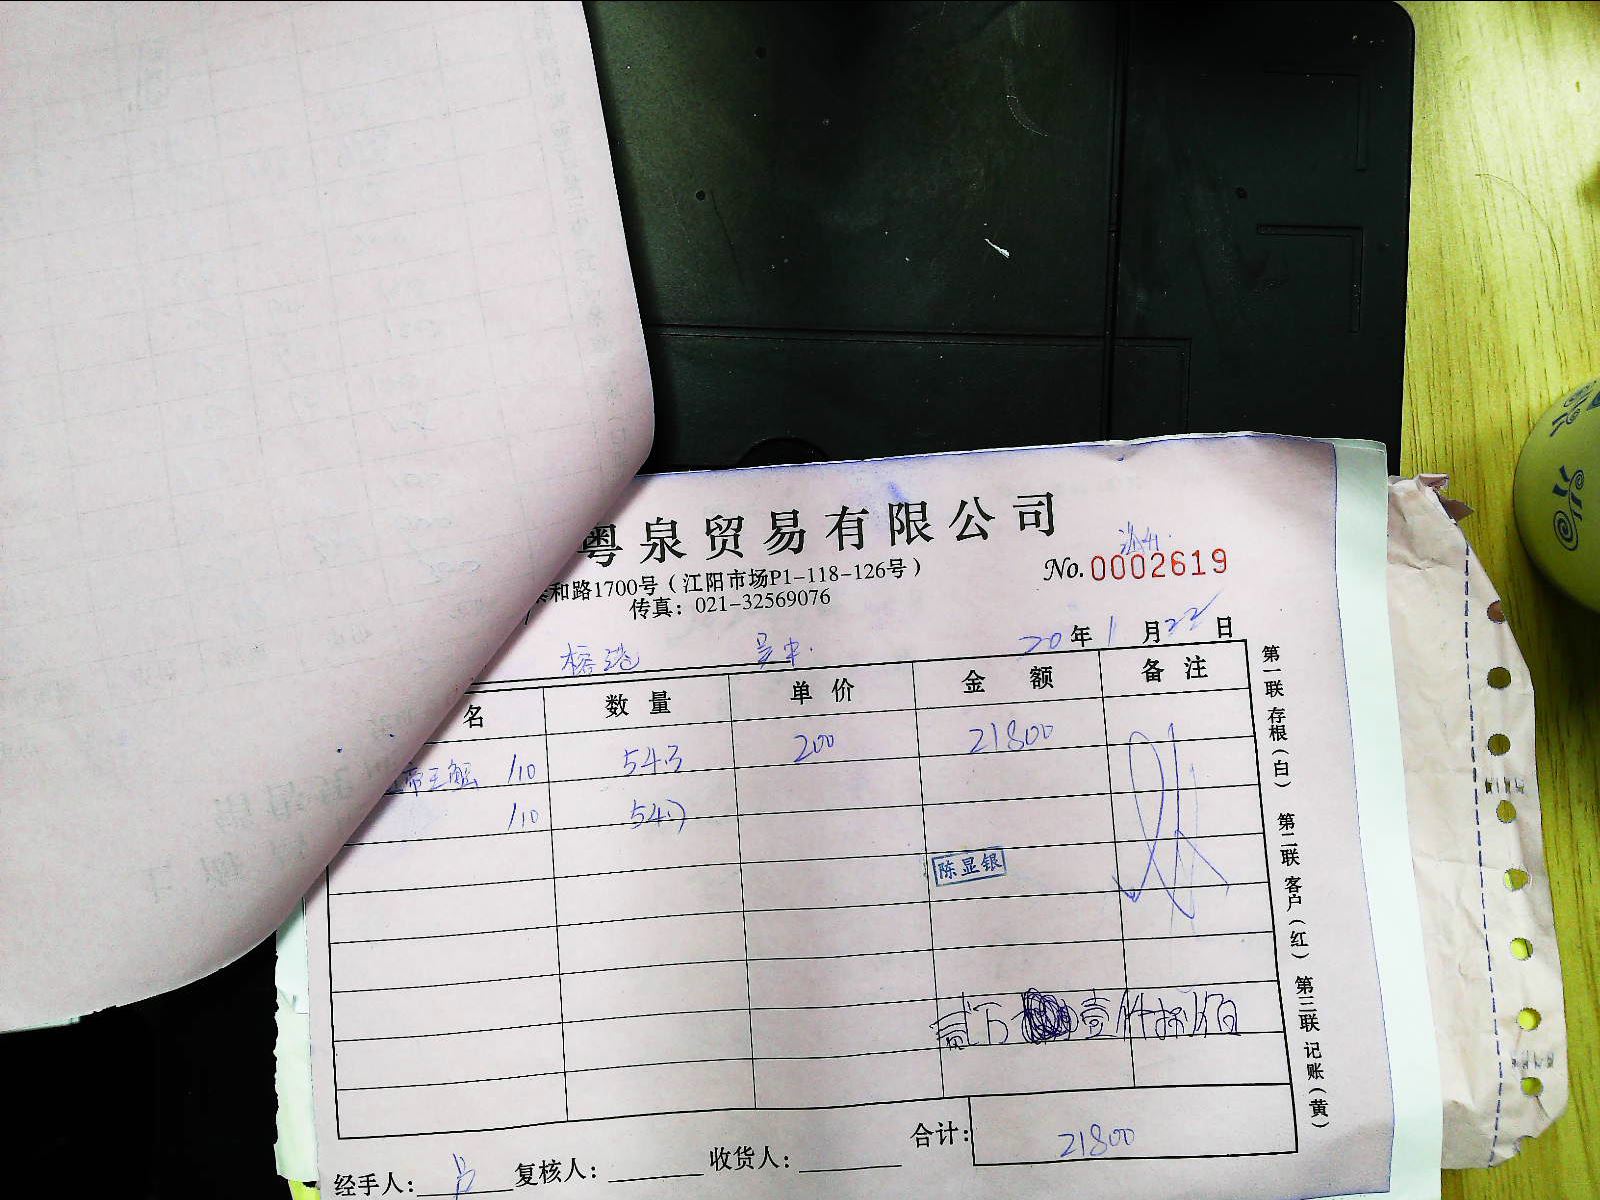 粤泉贸易有限公司
No.0002619
和路1700号（江阳市场P1-118-126号）
传真：021-32569076
20年1月22日
名 数量 单价 金额 备注
帝王蟹 /10 543 200 21800
/10 547
陈显银
贰万壹仟捌佰
合计：21800
经手人： 复核人： 收货人：
第一联 存根（白） 第二联 客户（红） 第三联 记账（黄）